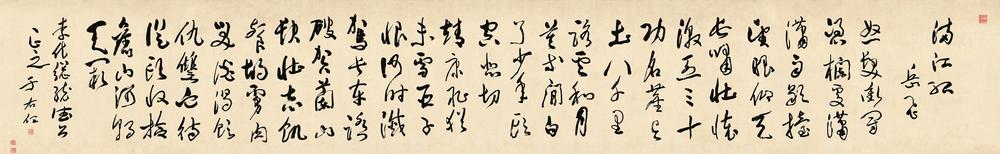 滿江紅
岳飛
怒髮衝冠
憑欄處瀟
瀟雨歇抬
望眼仰天
長嘯壯懷
激烈三十
功名塵與
土八千里
路雲和月
莫等閒白
了少年頭
空悲切
靖康恥猶
未雪臣子
恨何時滅
駕長車踏
破賀蘭山
缺壯志飢
餐胡虜肉
笑談渴飲
仇讎血待
從頭收拾
舊山河朝
天闕
李代總統德公
正之 于右任